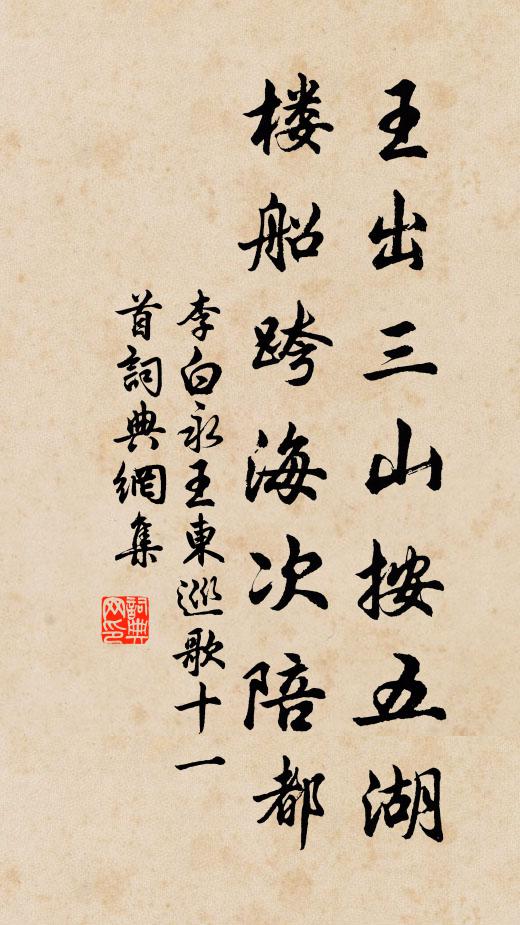 王出三山按五湖
楼船跨海次陪都
李白永王東巡歌十一
首詞典網集
詞典
网印